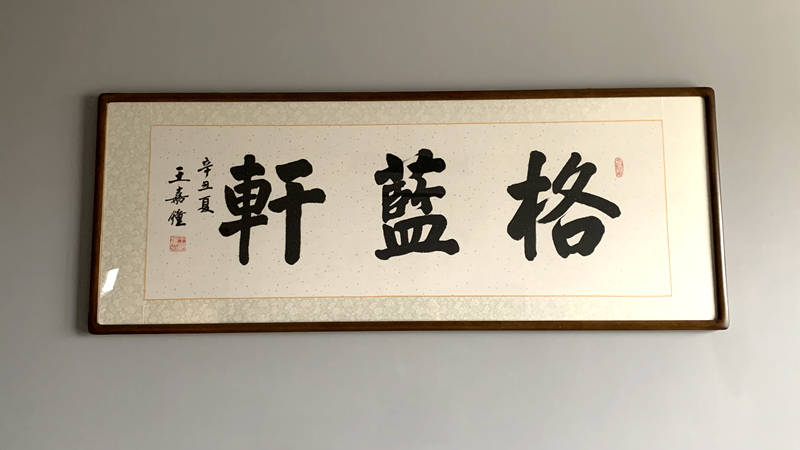 格藍軒
辛丑夏
王嘉鐘